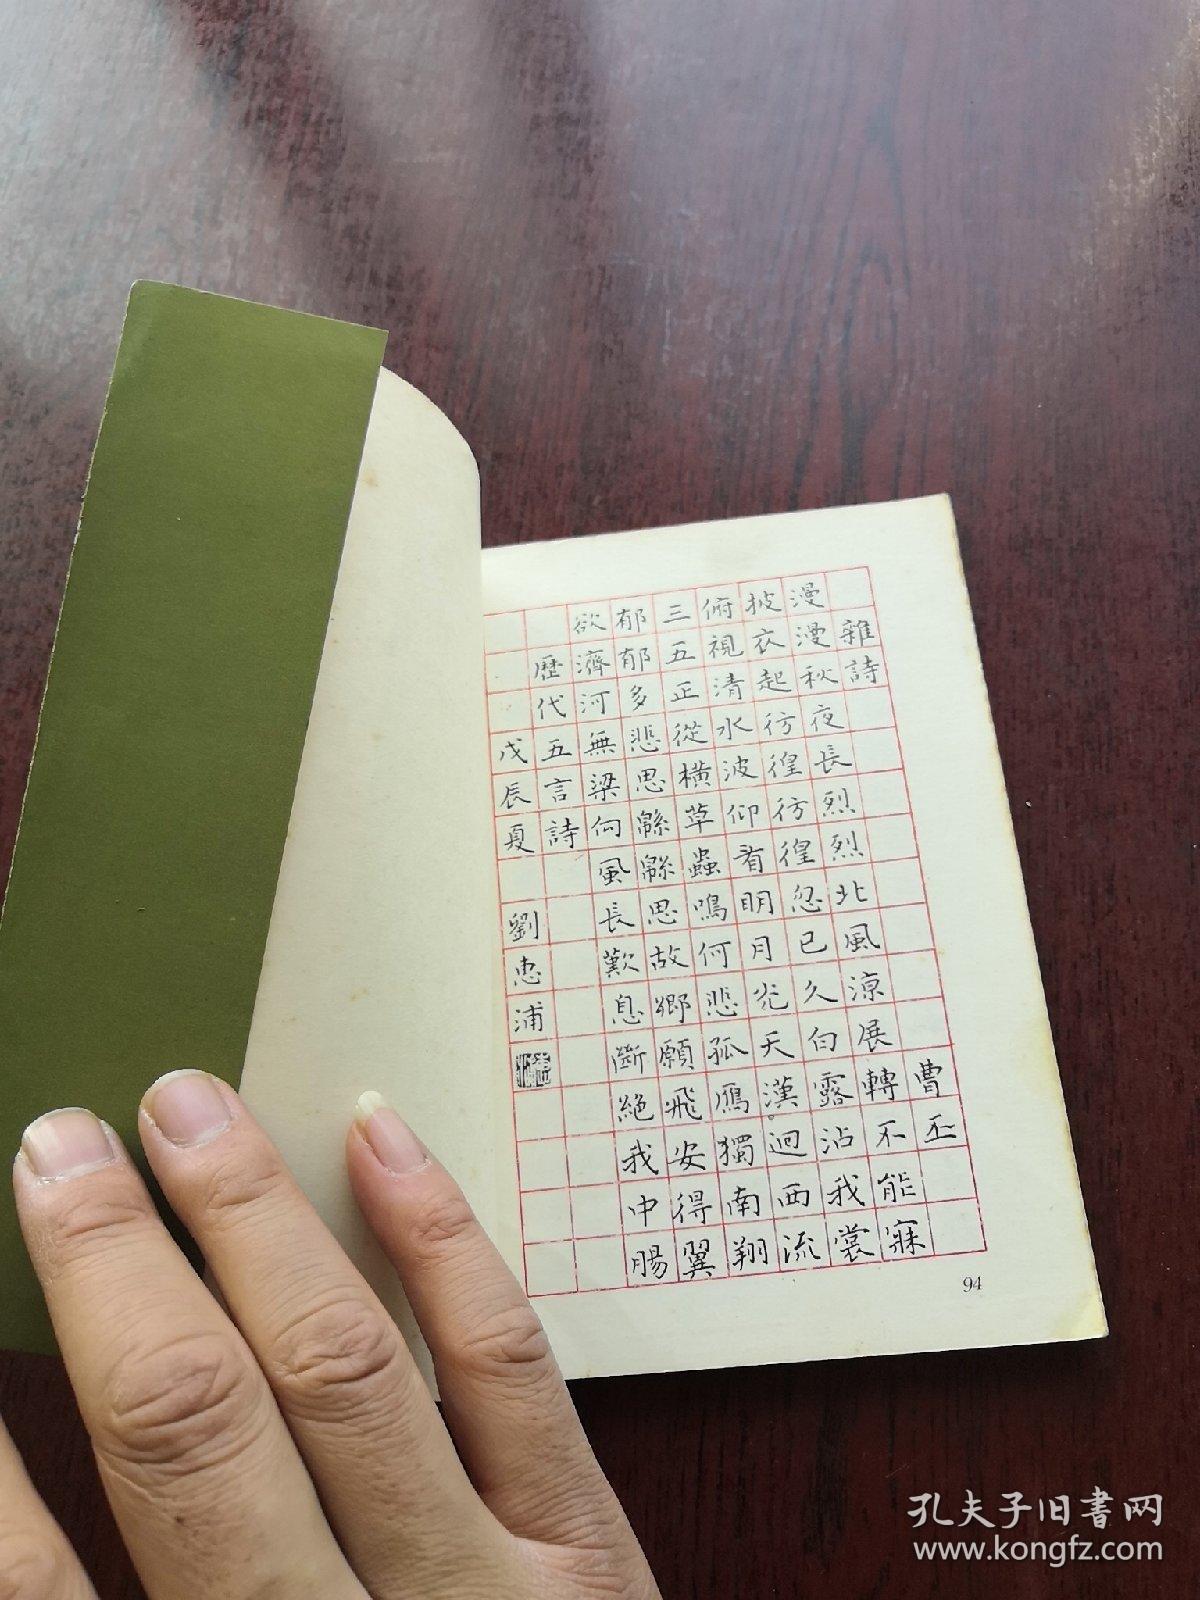 雜詩 曹丕
漫漫秋夜長烈烈北風涼展轉不能寐
披衣起彷徨彷徨忽已久白露沾我裳
俯視清水波仰看明月光天漢迴西流
三五正從橫草蟲鳴何悲孤鴈獨南翔
郁郁多悲思緜緜思故鄉願飛安得翼
欲濟河無梁向風長歎息斷絕我中腸
歷代五言詩
戊辰夏 劉惠浦
94
孔夫子旧書网
www.kongfz.com